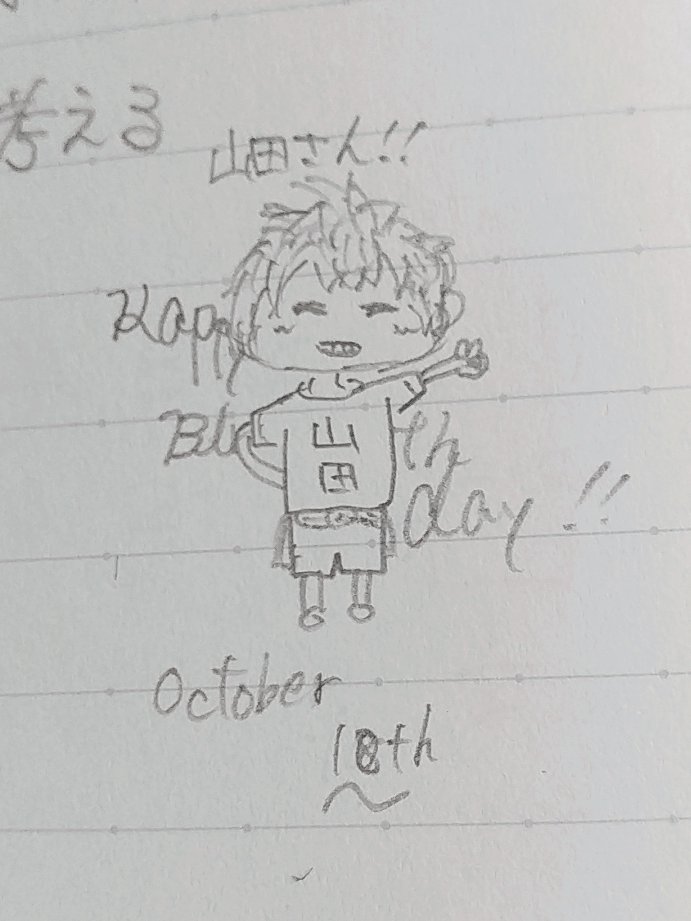 考える
山田さん!!
Happy
Birth
day!!
山
田
October
18th